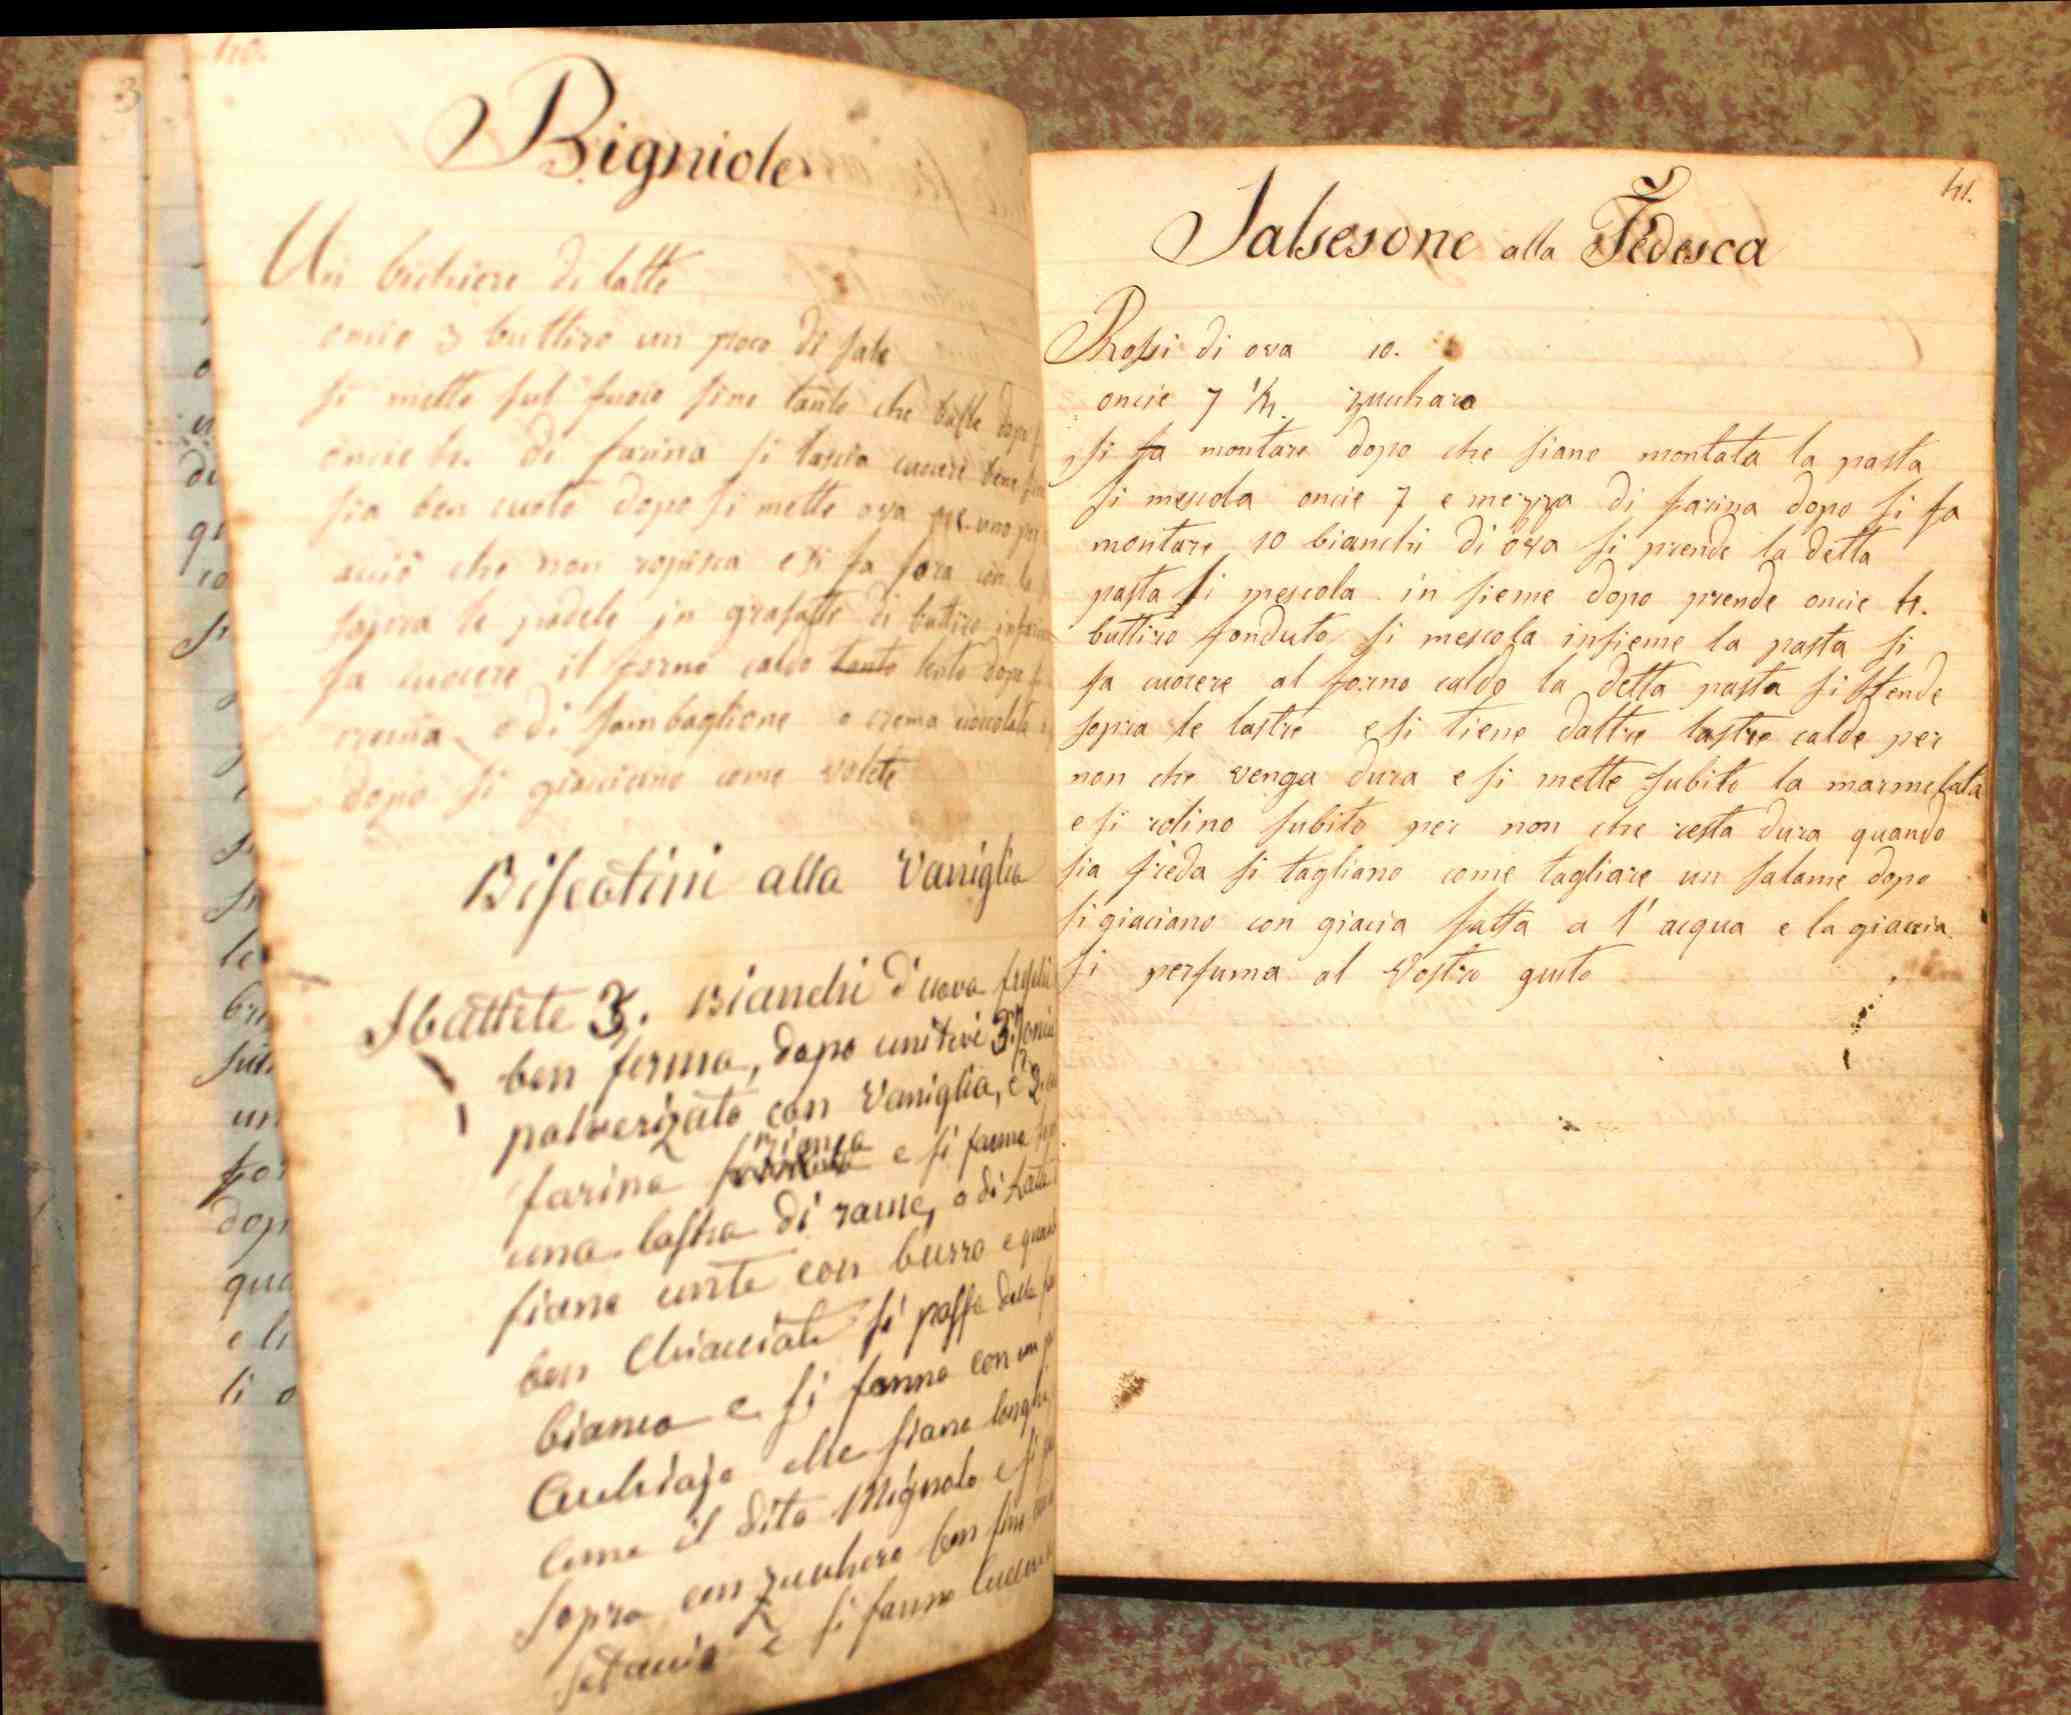 40.
Bigniole
Un bichiere di latte
oncie 3 buttiro un poco di sale
si mette sul fuoco sino tanto che bolle dopo
oncie 4. di farina si lascia cuocere bene
sia ben cuoto dopo si mette ova per uno per
aciò che non ropisca e si fa fora con la
sopora le padele in grasatte di buttiro
fa cuocere il forno caldo tanto lesto dopo
crema o di sambaglione o crema cioccolata
dopo si giacciano come volete
Biscotini alla Vaniglia
Sbattete 3. Bianchi d'uova
ben ferma, dopo unitevi 3. oncie
polverizato con Vaniglia, e 2.
farina bianca e si fanno
una lastra di rame, o di Latta
siano unte con burro e
ben Chiacciate si passa dalla
bianco e si fanno con un
Cuchiajo che siano longhi
come il dito Mignolo e si
sopra con zuchero ben fino
setaccio e si fanno
41.
Salsesone alla Tedesca
Rossi di ova 10.
oncie 7 ½ zuccharo
si fa montare dopo che siano montata la pasta
si mescola oncie 7 e mezza di farina dopo si fa
montare 10 bianchi di ova si prende la detta
pasta si mescola in sieme dopo prende oncie 4.
buttiro fonduto si mescola insieme la pasta si
fa cuocere al forno caldo la detta pasta si stende
sopra le lastre e si tiene daltre lastre calde per
non che venga dura e si mette subito la marmelata
e si rolino subito per non che resta dura quando
sia freda si tagliano come tagliare un salame dopo
si giaciano con giacia fatta a l'acqua e la giaccia
si perfuma al Vostro gusto